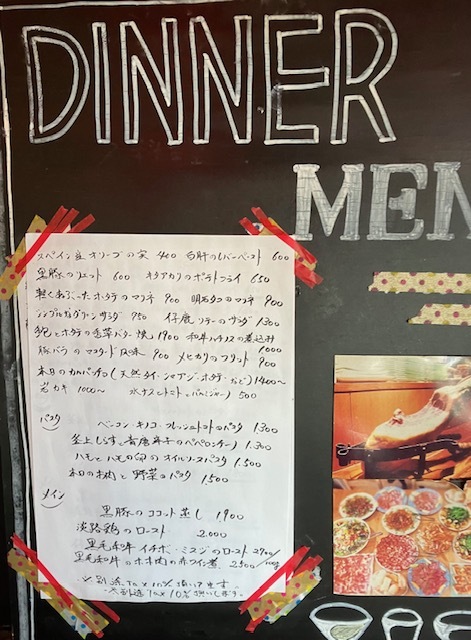 DINNER
MEN
スペイン産オリーブの実 400 白肝のレバーペースト 600
黒豚のリエット 600 キタアカリのポテトフライ 650
軽くあぶったホタテのマリネ 900 明石タコのマリネ 900
シンプルなグリーンサラダ 950 仔鹿ソテーのサラダ 1300
とホタテの香草バター焼 1900 和牛ハチノスの煮込み 1,000
豚バラのマスタード風味 900 メヒカリのフリット 900
本日のカルパッチョ(天然ダイ・シマアジ・ホタテなど) 1400~
岩カキ 1000~ 水ナスとトマト 500
パスタ
ベーコン・キノコ・フレッシュトマトのパスタ 1.300
釜上しらすと青唐辛子のペペロンチーノ 1.300
ハモとハモの卵のオイルソースパスタ 1.500
本日のお肉と野菜のパスタ 1.500
メイン
黒豚のココット蒸し 1,900
淡路鶏のロースト 2.000
黒毛和牛イチボ・ミスジのロースト 2700/100g
黒毛和牛のホホ肉の赤ワイン煮 2500